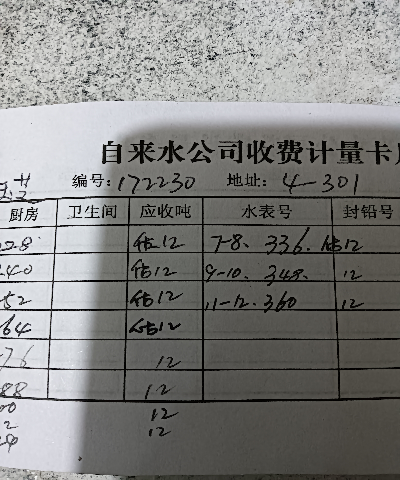 自来水公司收费计量卡
编号:172230 地址: 4-301
厨房 卫生间 应收吨 水表号 封铅号
28 估12 7-8、336、估12
40 估12 9-10、348、12
52 估12 11-12、360 12
64 估12
76 12
88 12
00 12
2 12